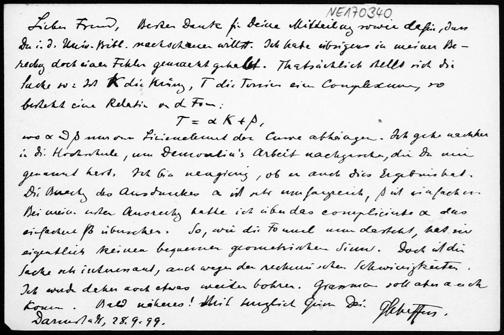 NE170340
Lieber Freund, Besten Dank für Deine Mitteilung sowie dafür, dass
Du i. d. Univ. Bibl. nachschauen willst. Ich habe übrigens in meiner Be-
rechng doch einen Fehler gemacht gehabt. Thatsächlich stellt sich die
Sache so: Ist K die Krümg, T die Torsion einer Complexcurve, so
besteht eine Relation von d. Form:
T = α K + β,
wo α β nur vom Linienelement der Curve abhängen. Ich gehe nachher
in die Hochschule, um Demoulin's Arbeit nachzusehen, die Du mir
genannt hast. Ich bin neugierig, ob er auch dies Ergebnis hat.
Die Berechg des Ausdruckes α ist sehr umfangreich, β ist einfacher.
Bei meiner ersten Ausrechng hatte ich über das complicirte α das
einfachere β übersehen. So, wie die Formel nun dasteht, hat sie
eigentlich keinen bequemen geometrischen Sinn. Doch ist die
Sache sehr interessant, auch wegen der rechnerischen Schwierigkeiten.
Ich werde daher noch etwas weiter bohren. Grassmann soll aber auch
kommen. Bald näheres! Mit herzlichem Gruss Dein GScheffers.
Darmstadt, 28.9.99.